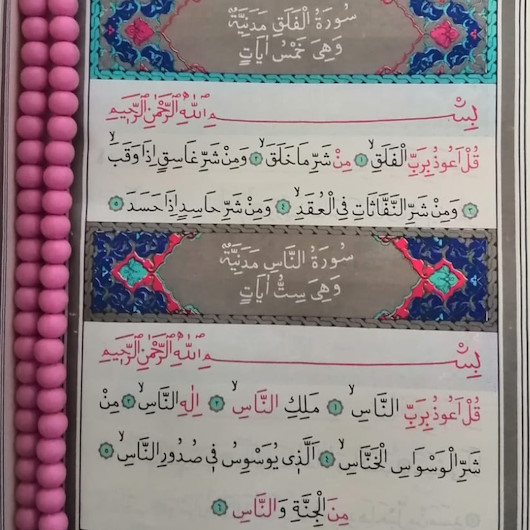 سُورَةُ الْفَلَقِ مَدَنِيَّةٌ
وَهِىَ خَمْسُ اٰيَاتٍ
بِسْمِ اللّٰهِ الرَّحْمٰنِ الرَّحِيمِ
قُلْ اَعُوذُ بِرَبِّ الْفَلَقِۙ ﴿١﴾ مِنْ شَرِّ مَا خَلَقَۙ ﴿٢﴾ وَمِنْ شَرِّ غَاسِقٍ اِذَا وَقَبَۙ
﴿٣﴾ وَمِنْ شَرِّ النَّفَّاثَاتِ فِى الْعُقَدِۙ ﴿٤﴾ وَمِنْ شَرِّ حَاسِدٍ اِذَا حَسَدَ ﴿٥﴾
سُورَةُ النَّاسِ مَدَنِيَّةٌ
وَهِىَ سِتُّ اٰيَاتٍ
بِسْمِ اللّٰهِ الرَّحْمٰنِ الرَّحِيمِ
قُلْ اَعُوذُ بِرَبِّ النَّاسِۙ ﴿١﴾ مَلِكِ النَّاسِۙ ﴿٢﴾ اِلٰهِ النَّاسِۙ ﴿٣﴾ مِنْ
شَرِّ الْوَسْوَاسِ الْخَنَّاسِۙ ﴿٤﴾ اَلَّذِى يُوَسْوِسُ فِى صُدُورِ النَّاسِۙ ﴿٥﴾
مِنَ الْجِنَّةِ وَالنَّاسِ ﴿٦﴾